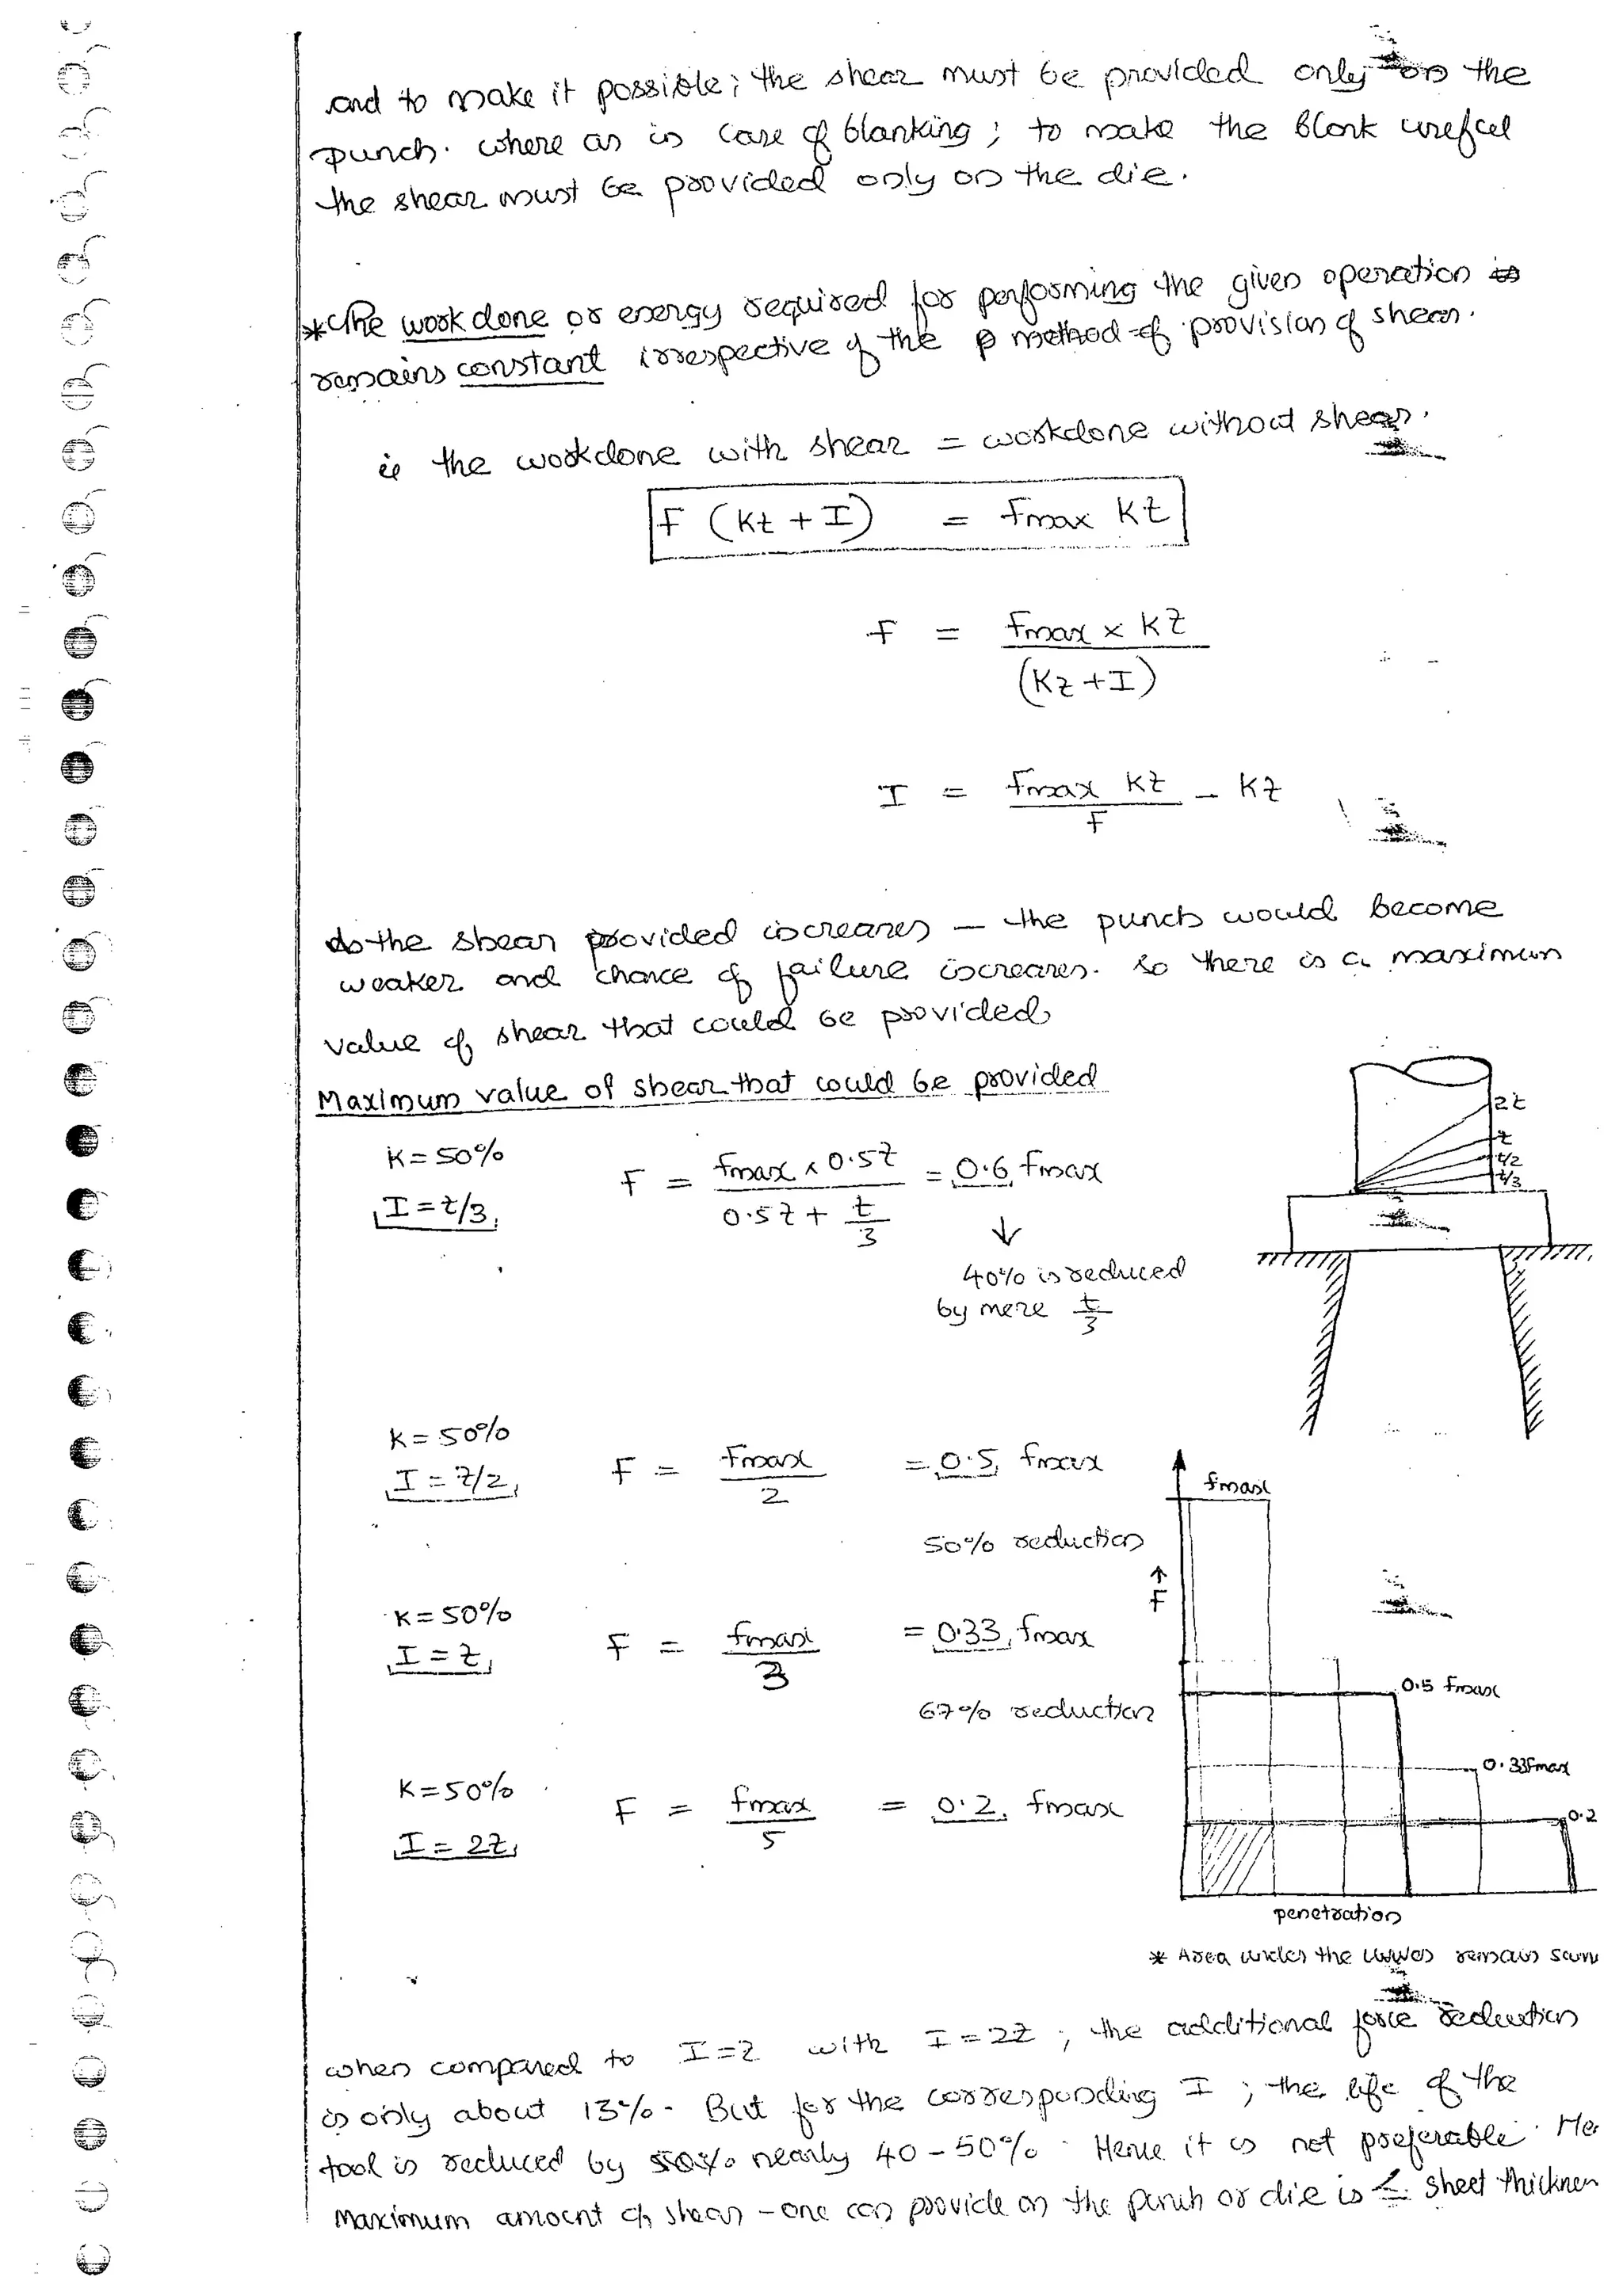 and to make it possible; the shear must be provided only on the
punch. where as in case of blanking; to make the blank useful
the shear must be provided only on the die.
*The work done or energy required for performing the given operation is
remains constant irrespective of the method of provision of shear.
ie the workdone with shear = workdone without shear.
F (Kt + I) = Fmax Kt
F = Fmax x Kt
(Kt + I)
I = Fmax Kt - Kt
F
As the shear provided increases - the punch would become
weaker and chance of failure increases. So there is a maximum
value of shear that could be provided
Maximum value of shear that could be provided
2t
t
t/2
t/3
K = 50%
I = t/3
F = Fmax x 0.5t = 0.6 Fmax
0.5t + t
3
↓
40% is reduced
by mere t
3
K = 50%
I = t/2
F = Fmax = 0.5 Fmax
2
50% reduction
K = 50%
I = t
F = Fmax = 0.33 Fmax
3
67% reduction
K = 50%
I = 2t
F = Fmax = 0.2 Fmax
5
Fmax
↑
F
0.5 Fmax
0.33Fmax
0.2
penetration
* Area under the curves remain same
when compared to I = t with I = 2t ; the additional force reduction
is only about 13%. But for the corresponding I ; the life of the
tool is reduced by nearly 40 - 50%. Hence it is not preferable. He
Maximum amount of shear - one can provide on the punch or die is ≤ sheet thicknes